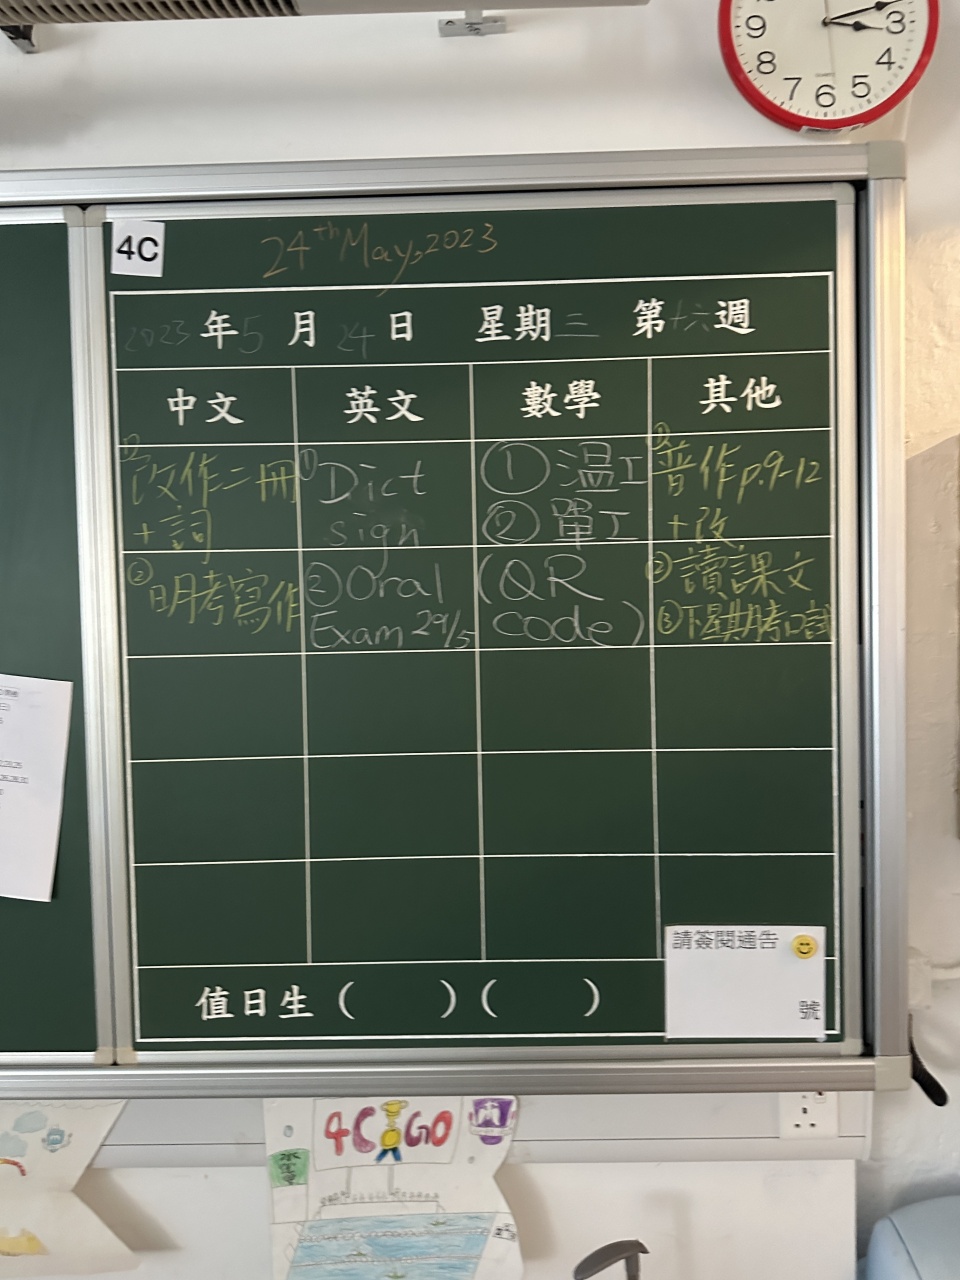 9 3
8 4
7 6 5
QUARTZ
4C
24th May, 2023
2023年5月24日 星期三 第十六週
中文 英文 數學 其他
① 改作二冊
+詞
② 明考寫作
① Dict
sign
② Oral
Exam 29/5
① 温工
② 單工
(QR
code)
① 普作p.9-12
+改
② 讀課文
③ 下星期考口試
請簽閱通告
號
值日生 ( ) ( )
4C GO